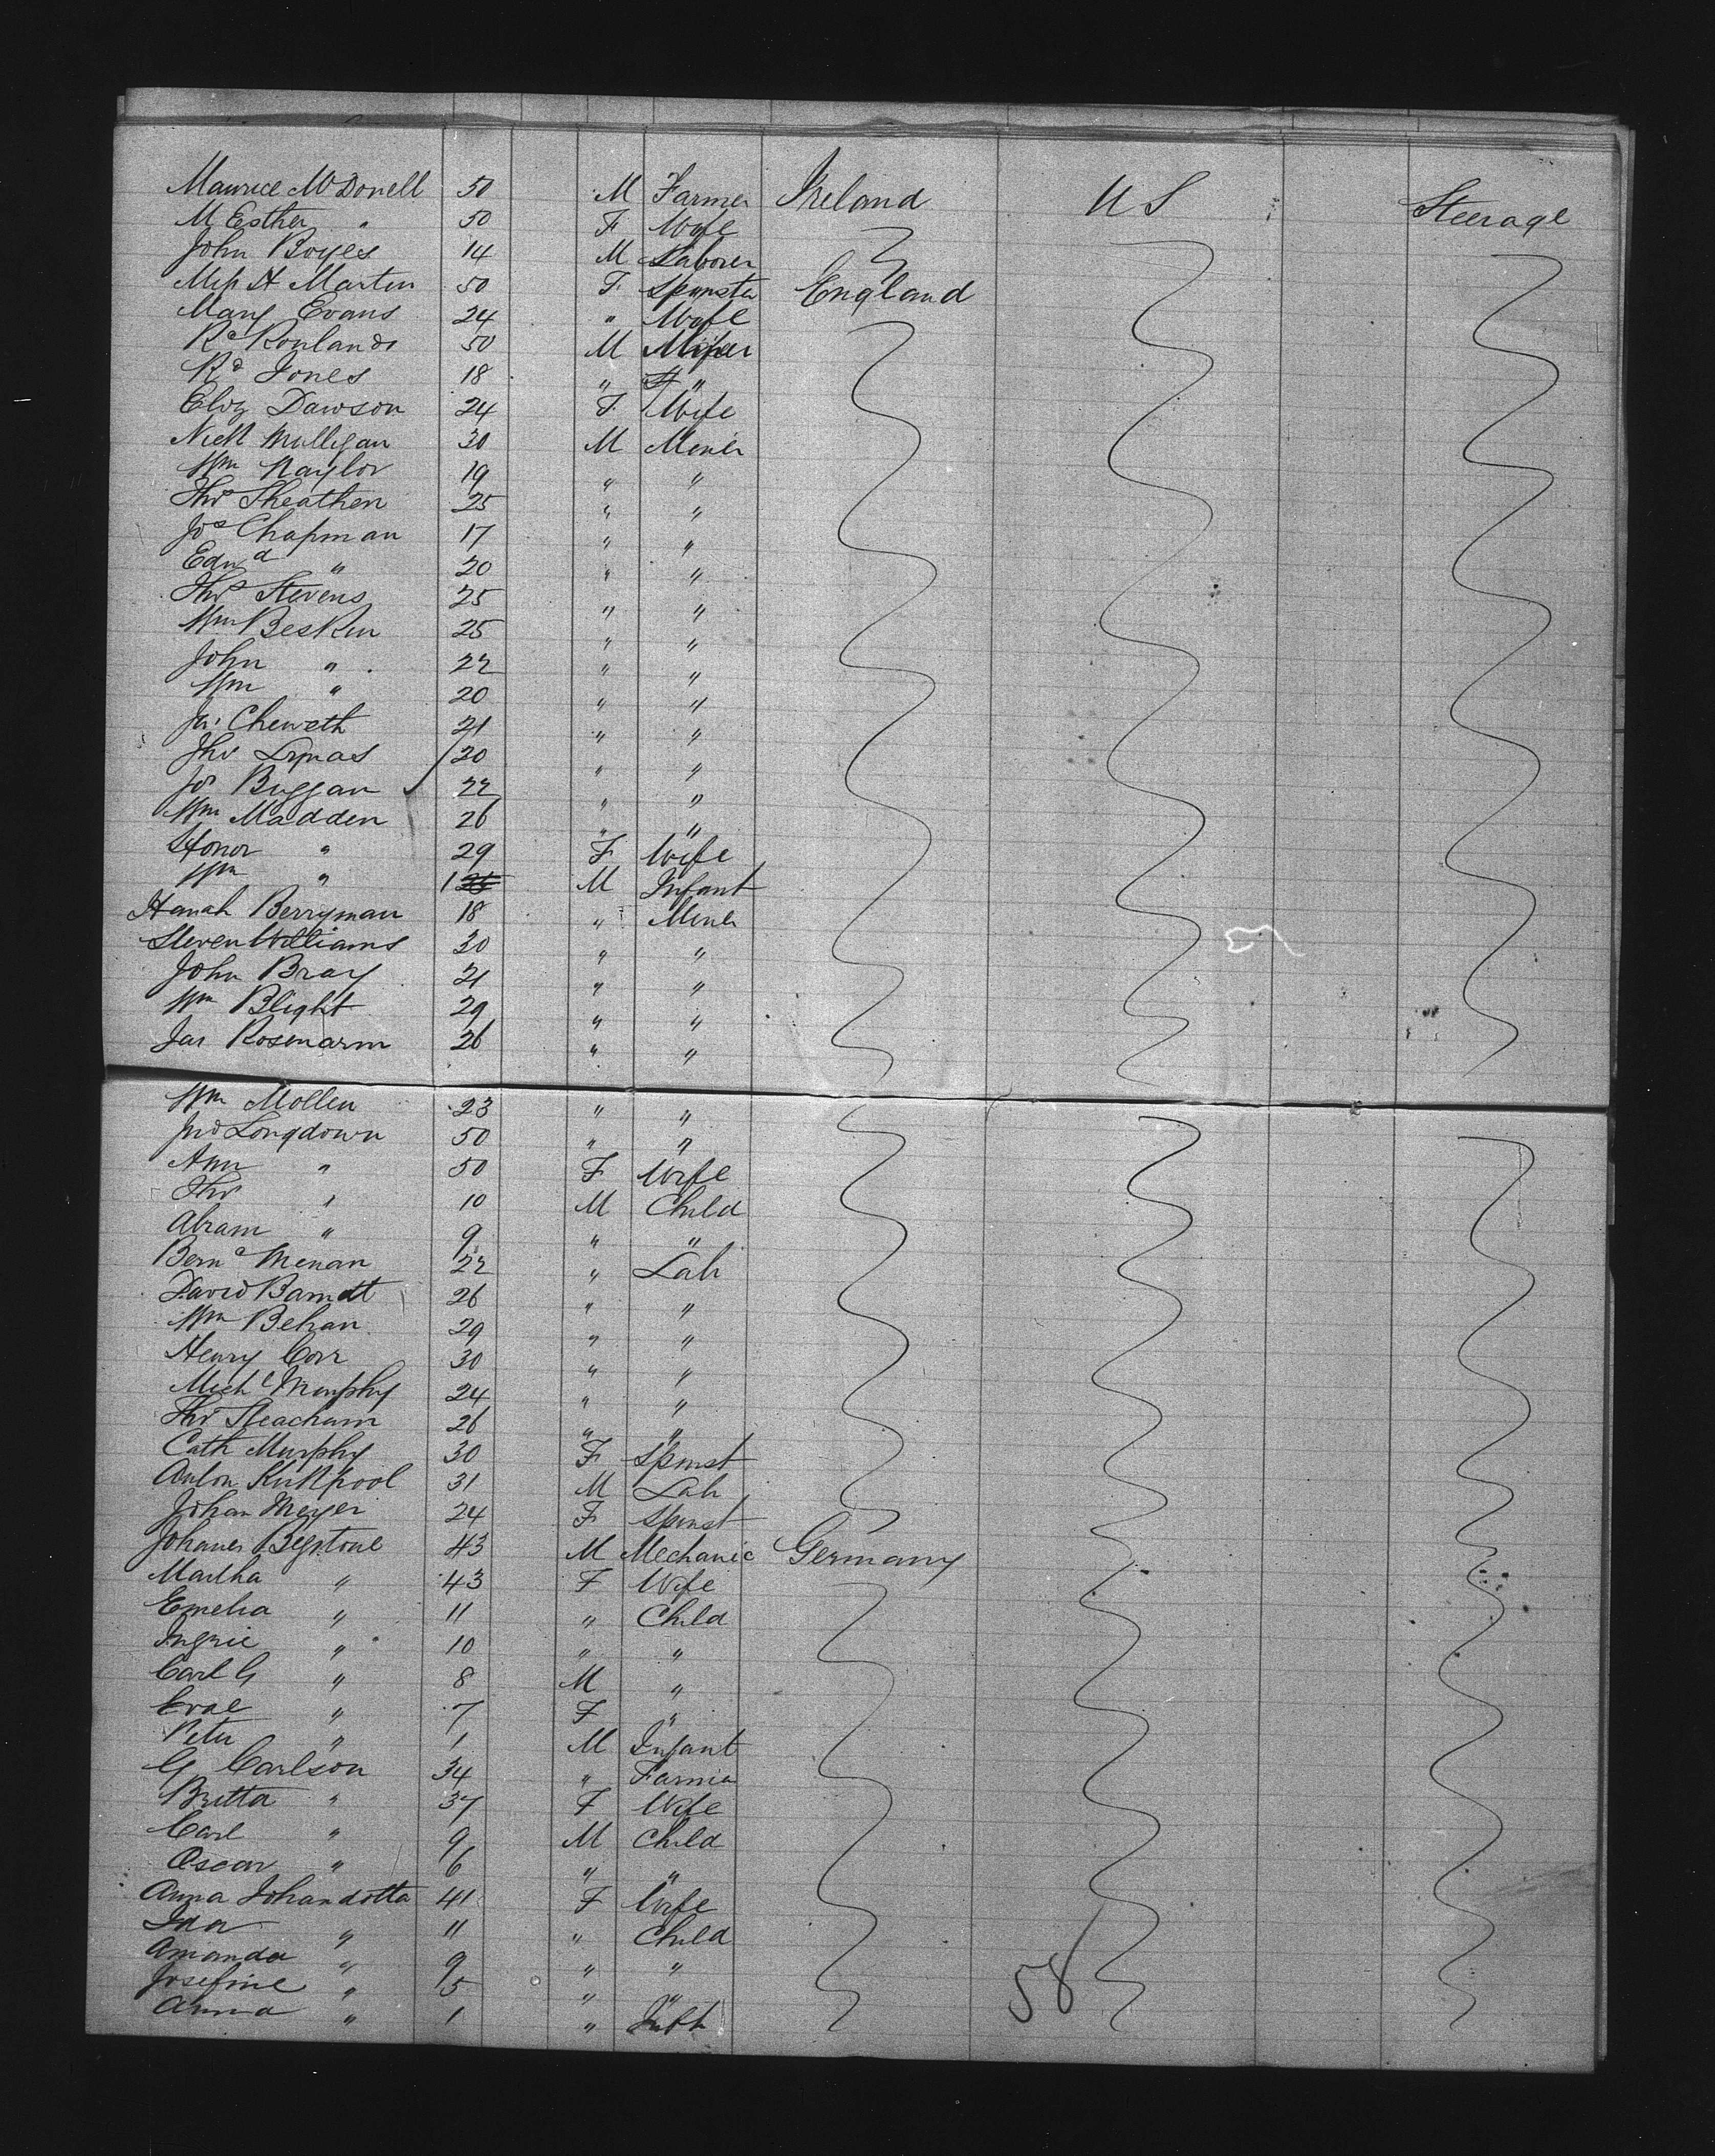 Maurice McDonell 50 M Farmer Ireland US Steerage
M Esther " 50 F Wife
John Boyes 14 M Laborer
Miss H Martin 50 F Spinster England
Mary Evans 24 " Wife
Rd Rowlands 50 M Miner
Rd Jones 18 " "
Eliz Dawson 24 F Wife
Nich Mulligan 30 M Miner
Wm Naylor 19 " "
Thos Sheathen 25 " "
Jos Chapman 17 " "
Edwd " 20 " "
Thos Stevens 25 " "
Wm Beskin 25 " "
John " 22 " "
Wm " 20 " "
Jas Cheweth 21 " "
Tho 20 " "
Jos Buggan 22 " "
Wm Madden 26 " "
Honor " 29 F Wife
Wm " 1 M Infant
Hanah Berryman 18 " Miner
Steven Williams 30 " "
John Bray 21 " "
Wm Blight 29 " "
Jas Rosewarm 26 " "
Wm Mollen 23 " "
Jno Longdown 50 " "
Ann " 50 F Wife
Tho " 10 M Child
Abram " 9 " "
Bernd Menan 22 " Lab
David Barndt 26 " "
Wm Behan 29 " "
Henry Corr 30 " "
Michl Murphy 24 " "
Tho Steacham 26 " "
Cath Murphy 30 F Spinst
Anton 31 M Lab
Johan Meyer 24 F Spinst
Johanes Begstone 43 M Mechanic Germany
Martha " 43 F Wife
Emelia " 11 " Child
Ingrie " 10 " "
Carl G " 8 M "
Evae " 7 F "
Peter " 1 M Infant
G Carlson 34 " Farmer
Britta " 37 F Wife
Carl " 9 M Child
Oscar " 6 " "
Anna Johandotta 41 F Wife
Ida " 11 " Child
Amanda " 9 " "
Josefine " 5 " "
Anna " 1 " Inft
58